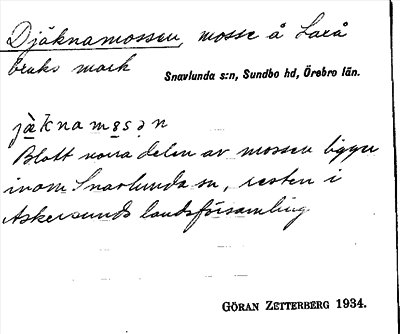 Djäknamossen, mosse å Laxå
bruks mark
Snavlunda s:n, Sundbo hd, Örebro län.
jä̀knamo̥sən
Blott norra delen av mossen ligger
inom Snavlunda sn, resten i
Askersunds landsförsamling
GÖRAN ZETTERBERG 1934.